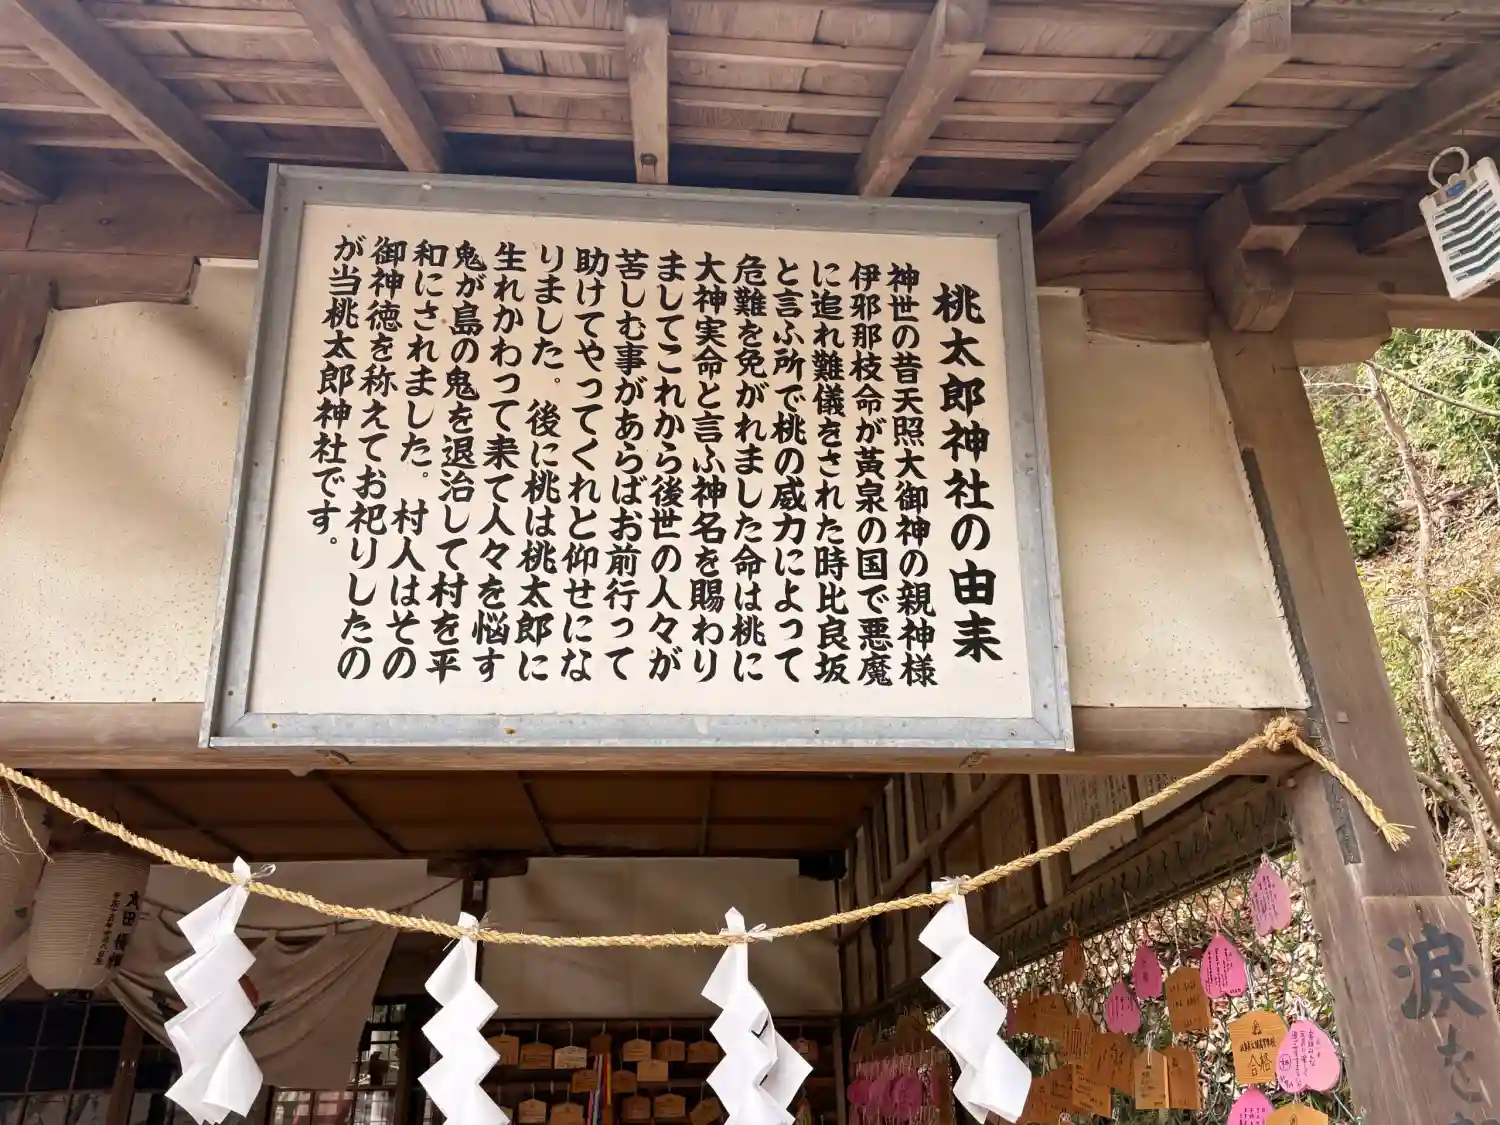 桃太郎神社の由来
神世の昔天照大御神の親神様
伊邪那枝命が黃泉の国で悪魔
に追れ難儀をされた時比良坂
と言ふ所で桃の威力によって
危難を免がれました命は桃に
大神実命と言ふ神名を賜わり
ましてこれから後世の人々が
苦しむ事があらばお前行って
助けてやってくれと仰せにな
りました。後に桃は桃太郎に
生れかわって来て人々を悩す
鬼が島の鬼を退治して村を平
和にされました。村人はその
御神徳を称えてお祀りしたの
が当桃太郎神社です。
涙を
合格